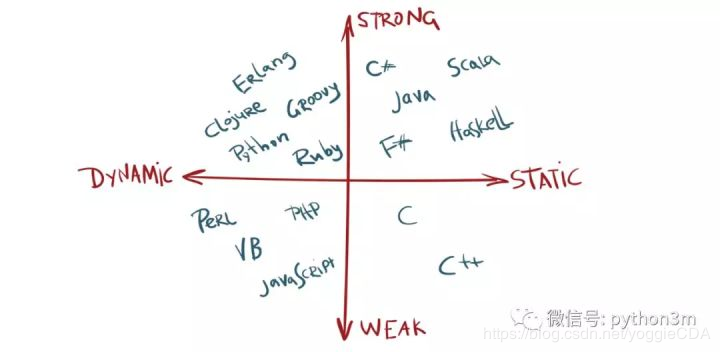 STRONG
Erlang
C#
Scala
Clojure
Groovy
Java
Python
Ruby
F#
Haskell
DYNAMIC
STATIC
PERL
PHP
C
VB
JavaScript
C++
WEAK
微信号: python3m
https://blog.csdn.net/yoggieCDA